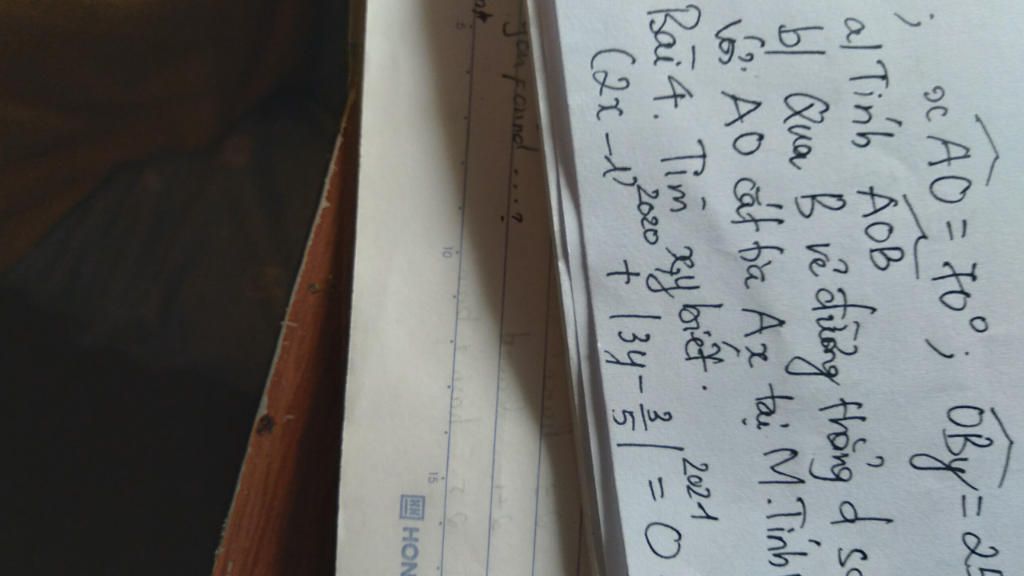 ;
xAO = 70°; OBy = 25
a) Tính AOB
b) Qua B vẽ đường thẳng d so
với AO cắt tia Ax tại M. Tính
Bài 4. Tìm x, y biết.
(2x - 1)^2020 + |3y - 3/5|^2021 = 0
5 10 15
HON